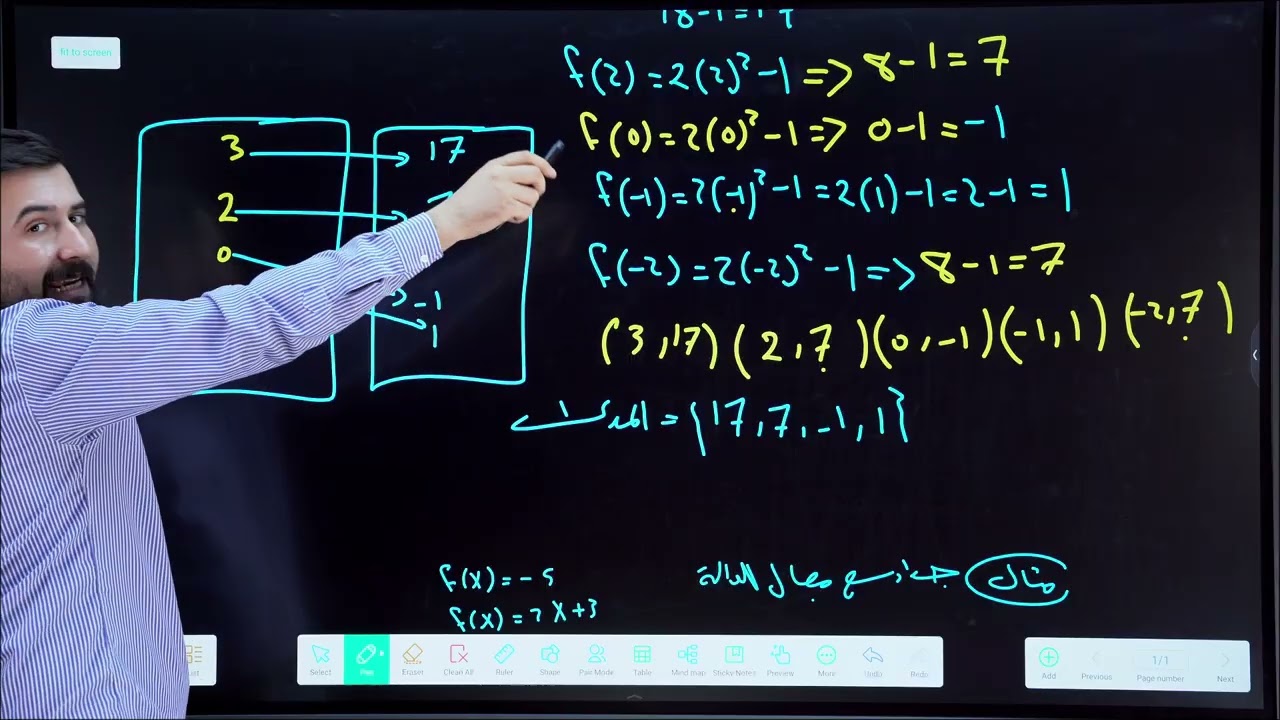 18-1=17
fit to screen
f(2)=2(2)²-1=>8-1=7
f(0)=2(0)²-1=>0-1=-1
f(-1)=2(-1)²-1=2(1)-1=2-1=1
f(-2)=2(-2)²-1=>8-1=7
(3,17)(2,7)(0,-1)(-1,1)(-2,7)
3
17
2
0
-1
1
المدى = {17,7,-1,1}
مثال
مجال الدالة
f(x)=-5
f(x)=2x+3
Select
Pen
Eraser
Clean All
Ruler
Shape
Pair Mode
Table
Mind map
Sticky Notes
Preview
More
Undo
Redo
Add
Previous
1/1
Page number
Next